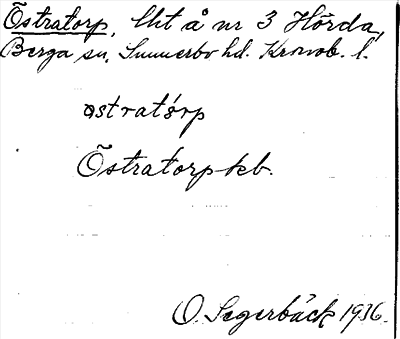 Östratorp, lht å nr 3 Hörda,
Berga sn, Sunnerbo hd. Kronob. l.
östratórp
Östratorp kb.
O. Segerbäck 1936.